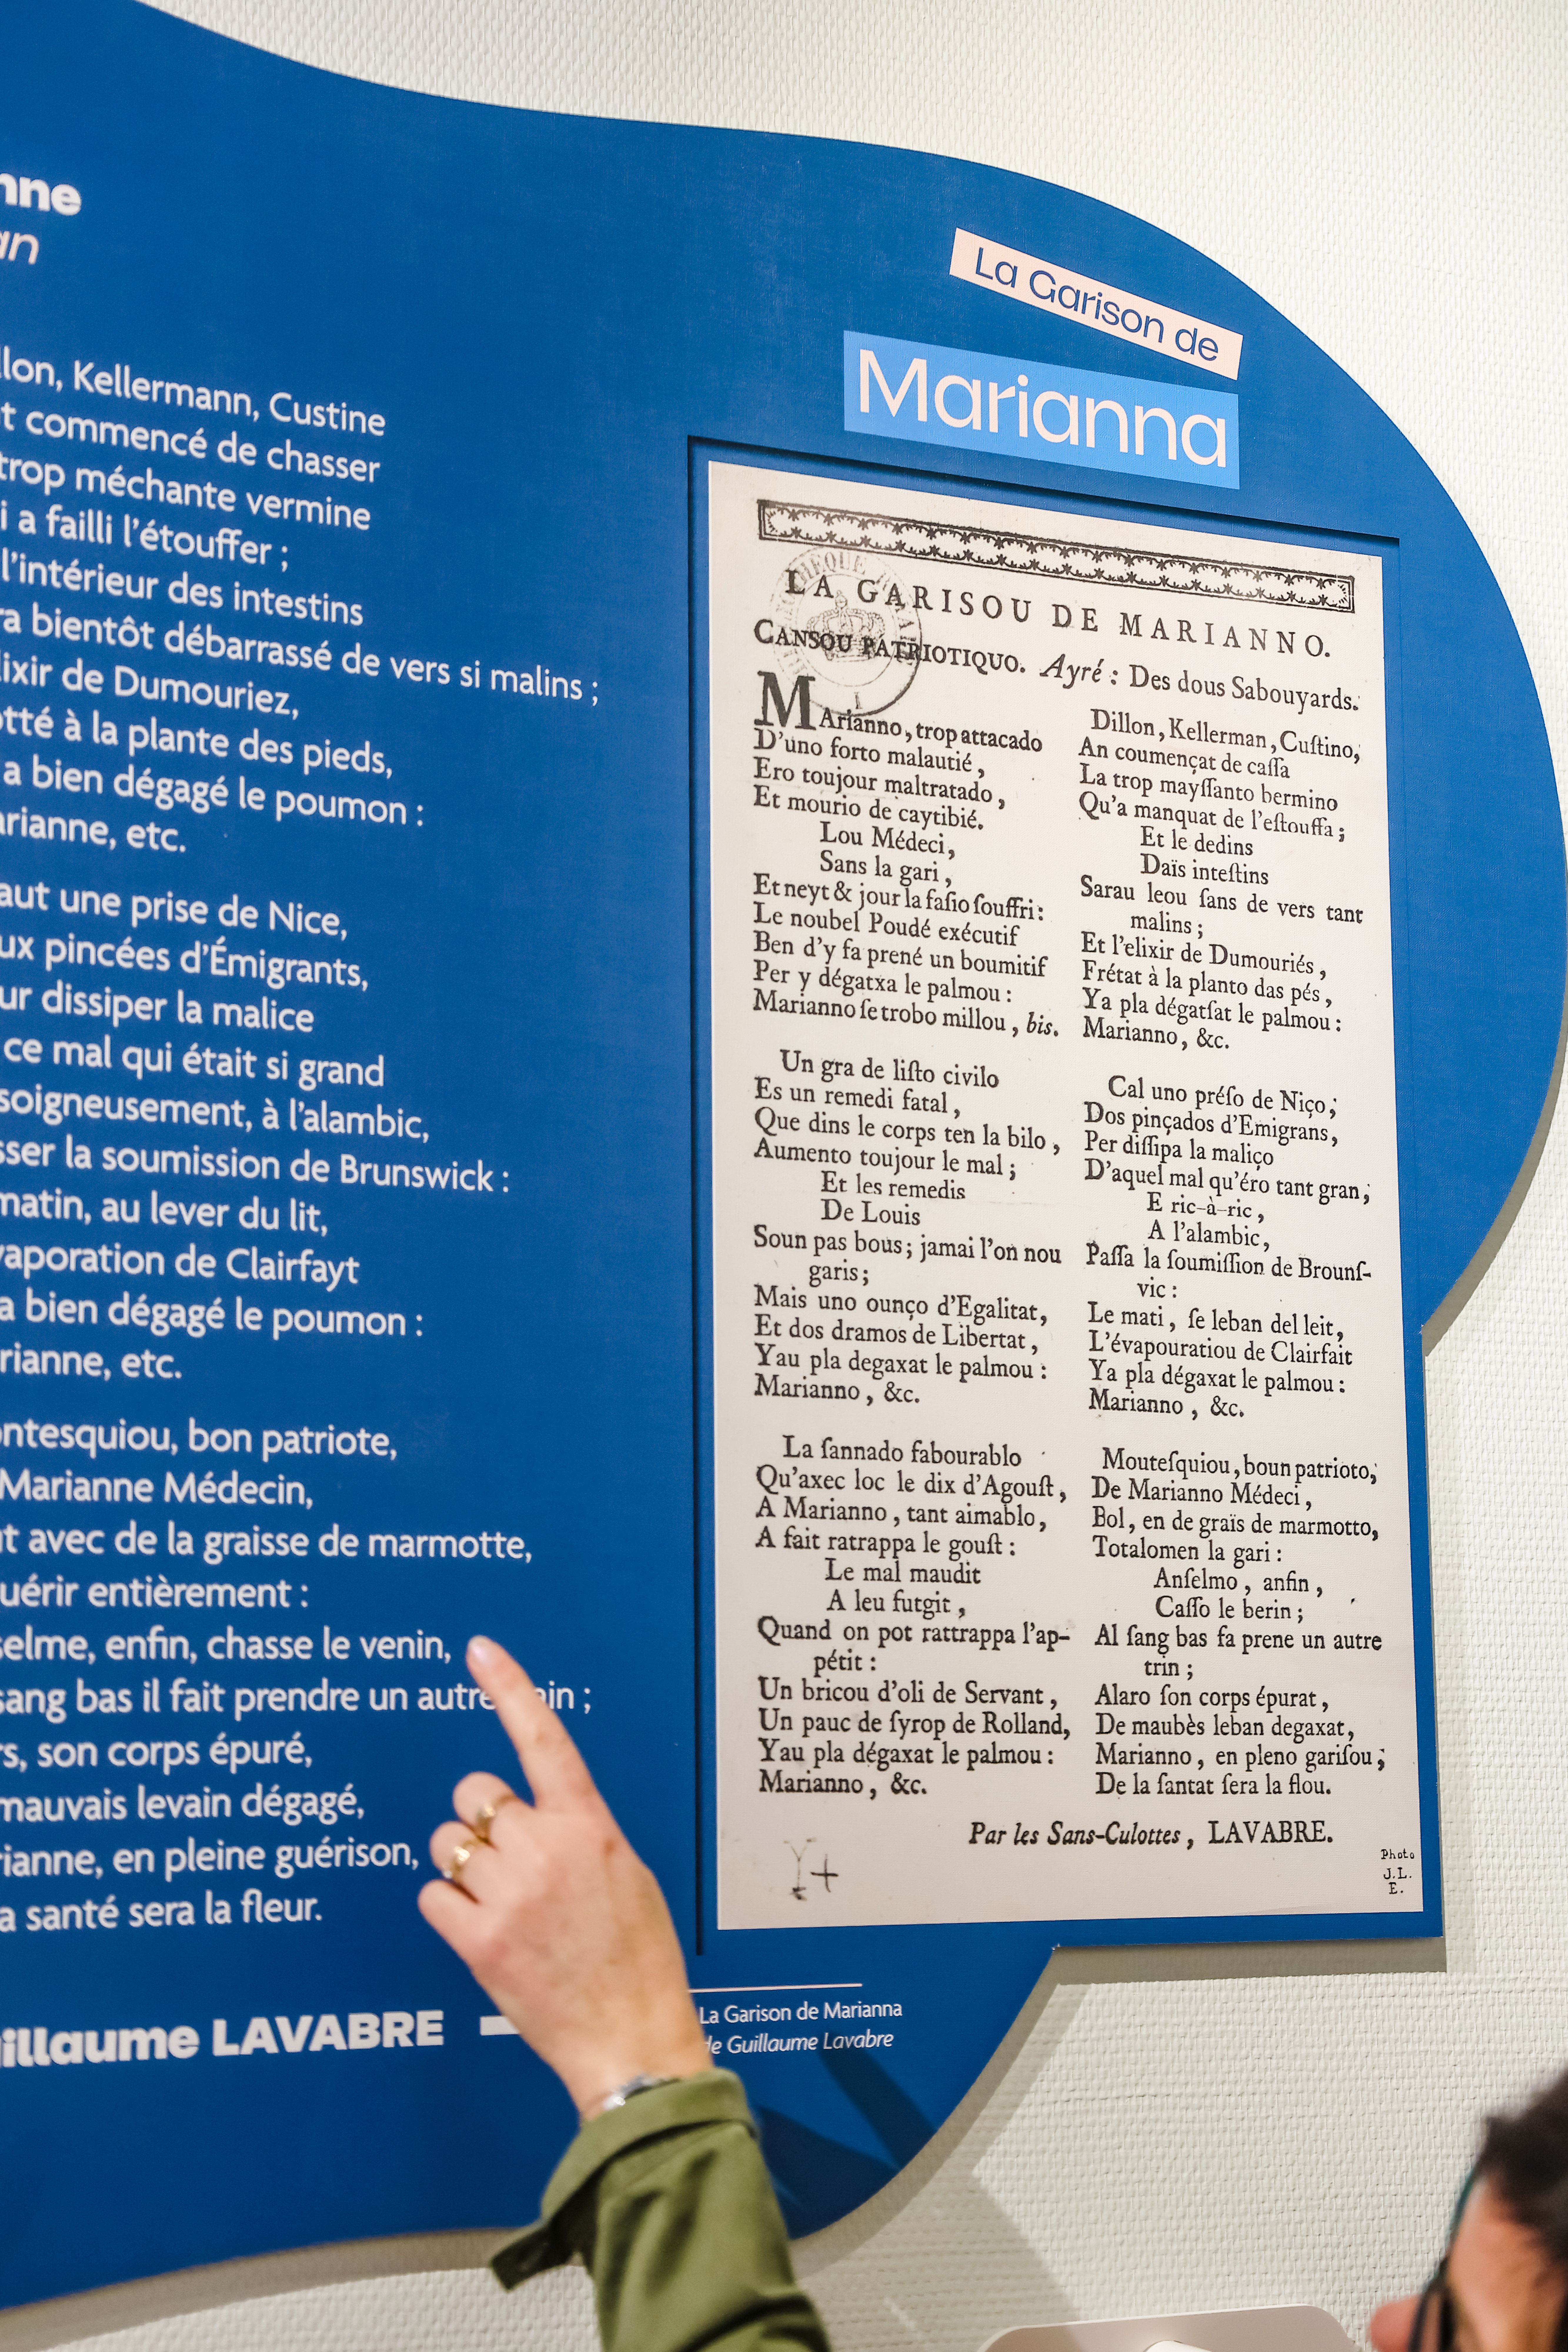 nne
an
llon, Kellermann, Custine
t commencé de chasser
trop méchante vermine
i a failli l'étouffer ;
l'intérieur des intestins
ra bientôt débarrassé de vers si malins ;
lixir de Dumouriez,
otté à la plante des pieds,
a bien dégagé le poumon :
arianne, etc.
aut une prise de Nice,
ux pincées d'Émigrants,
ur dissiper la malice
ce mal qui était si grand
soigneusement, à l'alambic,
sser la soumission de Brunswick :
matin, au lever du lit,
vaporation de Clairfayt
a bien dégagé le poumon :
rianne, etc.
ontesquiou, bon patriote,
Marianne Médecin,
t avec de la graisse de marmotte,
uérir entièrement :
selme, enfin, chasse le venin,
sang bas il fait prendre un autre ain ;
rs, son corps épuré,
mauvais levain dégagé,
rianne, en pleine guérison,
a santé sera la fleur.
illaume LAVABRE
La Garison de
Marianna
LA GARISOU DE MARIANNO.
CANSOU PATRIOTIQUO. Ayré : Des dous Sabouyards.
MArianno, trop attacado
D'uno forto malautié,
Ero toujour maltratado,
Et mourio de caytibié.
Lou Médeci,
Sans la gari,
Et neyt & jour la faſio ſouffri :
Le noubel Poudé exécutif
Ben d'y fa prené un boumitif
Per y dégatxa le palmou :
Marianno ſe trobo millou, bis.
Un gra de liſto civilo
Es un remedi fatal,
Que dins le corps ten la bilo,
Aumento toujour le mal ;
Et les remedis
De Louis
Soun pas bous ; jamai l'on nou
garis ;
Mais uno ounço d'Egalitat,
Et dos dramos de Libertat,
Yau pla degaxat le palmou :
Marianno, &c.
La ſannado fabourablo
Qu'axec loc le dix d'Agouſt,
A Marianno, tant aimablo,
A fait ratrappa le gouſt :
Le mal maudit
A leu futgit,
Quand on pot rattrappa l'ap-
pétit :
Un bricou d'oli de Servant,
Un pauc de ſyrop de Rolland,
Yau pla dégaxat le palmou :
Marianno, &c.
Dillon, Kellerman, Cuſtino,
An coumençat de caſſa
La trop mayſſanto bermino
Qu'a manquat de l'eſtouffa ;
Et le dedins
Daïs inteſtins
Sarau leou ſans de vers tant
malins ;
Et l'elixir de Dumouriés,
Frétat à la planto das pés,
Ya pla dégatſat le palmou :
Marianno, &c.
Cal uno préſo de Niço ;
Dos pinçados d'Emigrans,
Per diſſipa la maliço
D'aquel mal qu'éro tant gran ;
E ric-à-ric,
A l'alambic,
Paſſa la ſoumiſſion de Brounſ-
vic :
Le mati, ſe leban del leit,
L'évapouratiou de Clairfait
Ya pla dégaxat le palmou :
Marianno, &c.
Mouteſquiou, boun patrioto,
De Marianno Médeci,
Bol, en de graïs de marmotto,
Totalomen la gari :
Anſelmo, anfin,
Caſſo le berin ;
Al ſang bas fa prene un autre
trin ;
Alaro ſon corps épurat,
De maubès leban degaxat,
Marianno, en pleno gariſou ;
De la ſantat ſera la flou.
Par les Sans-Culottes, LAVABRE.
Photo
J.L.
E.
La Garison de Marianna
de Guillaume Lavabre